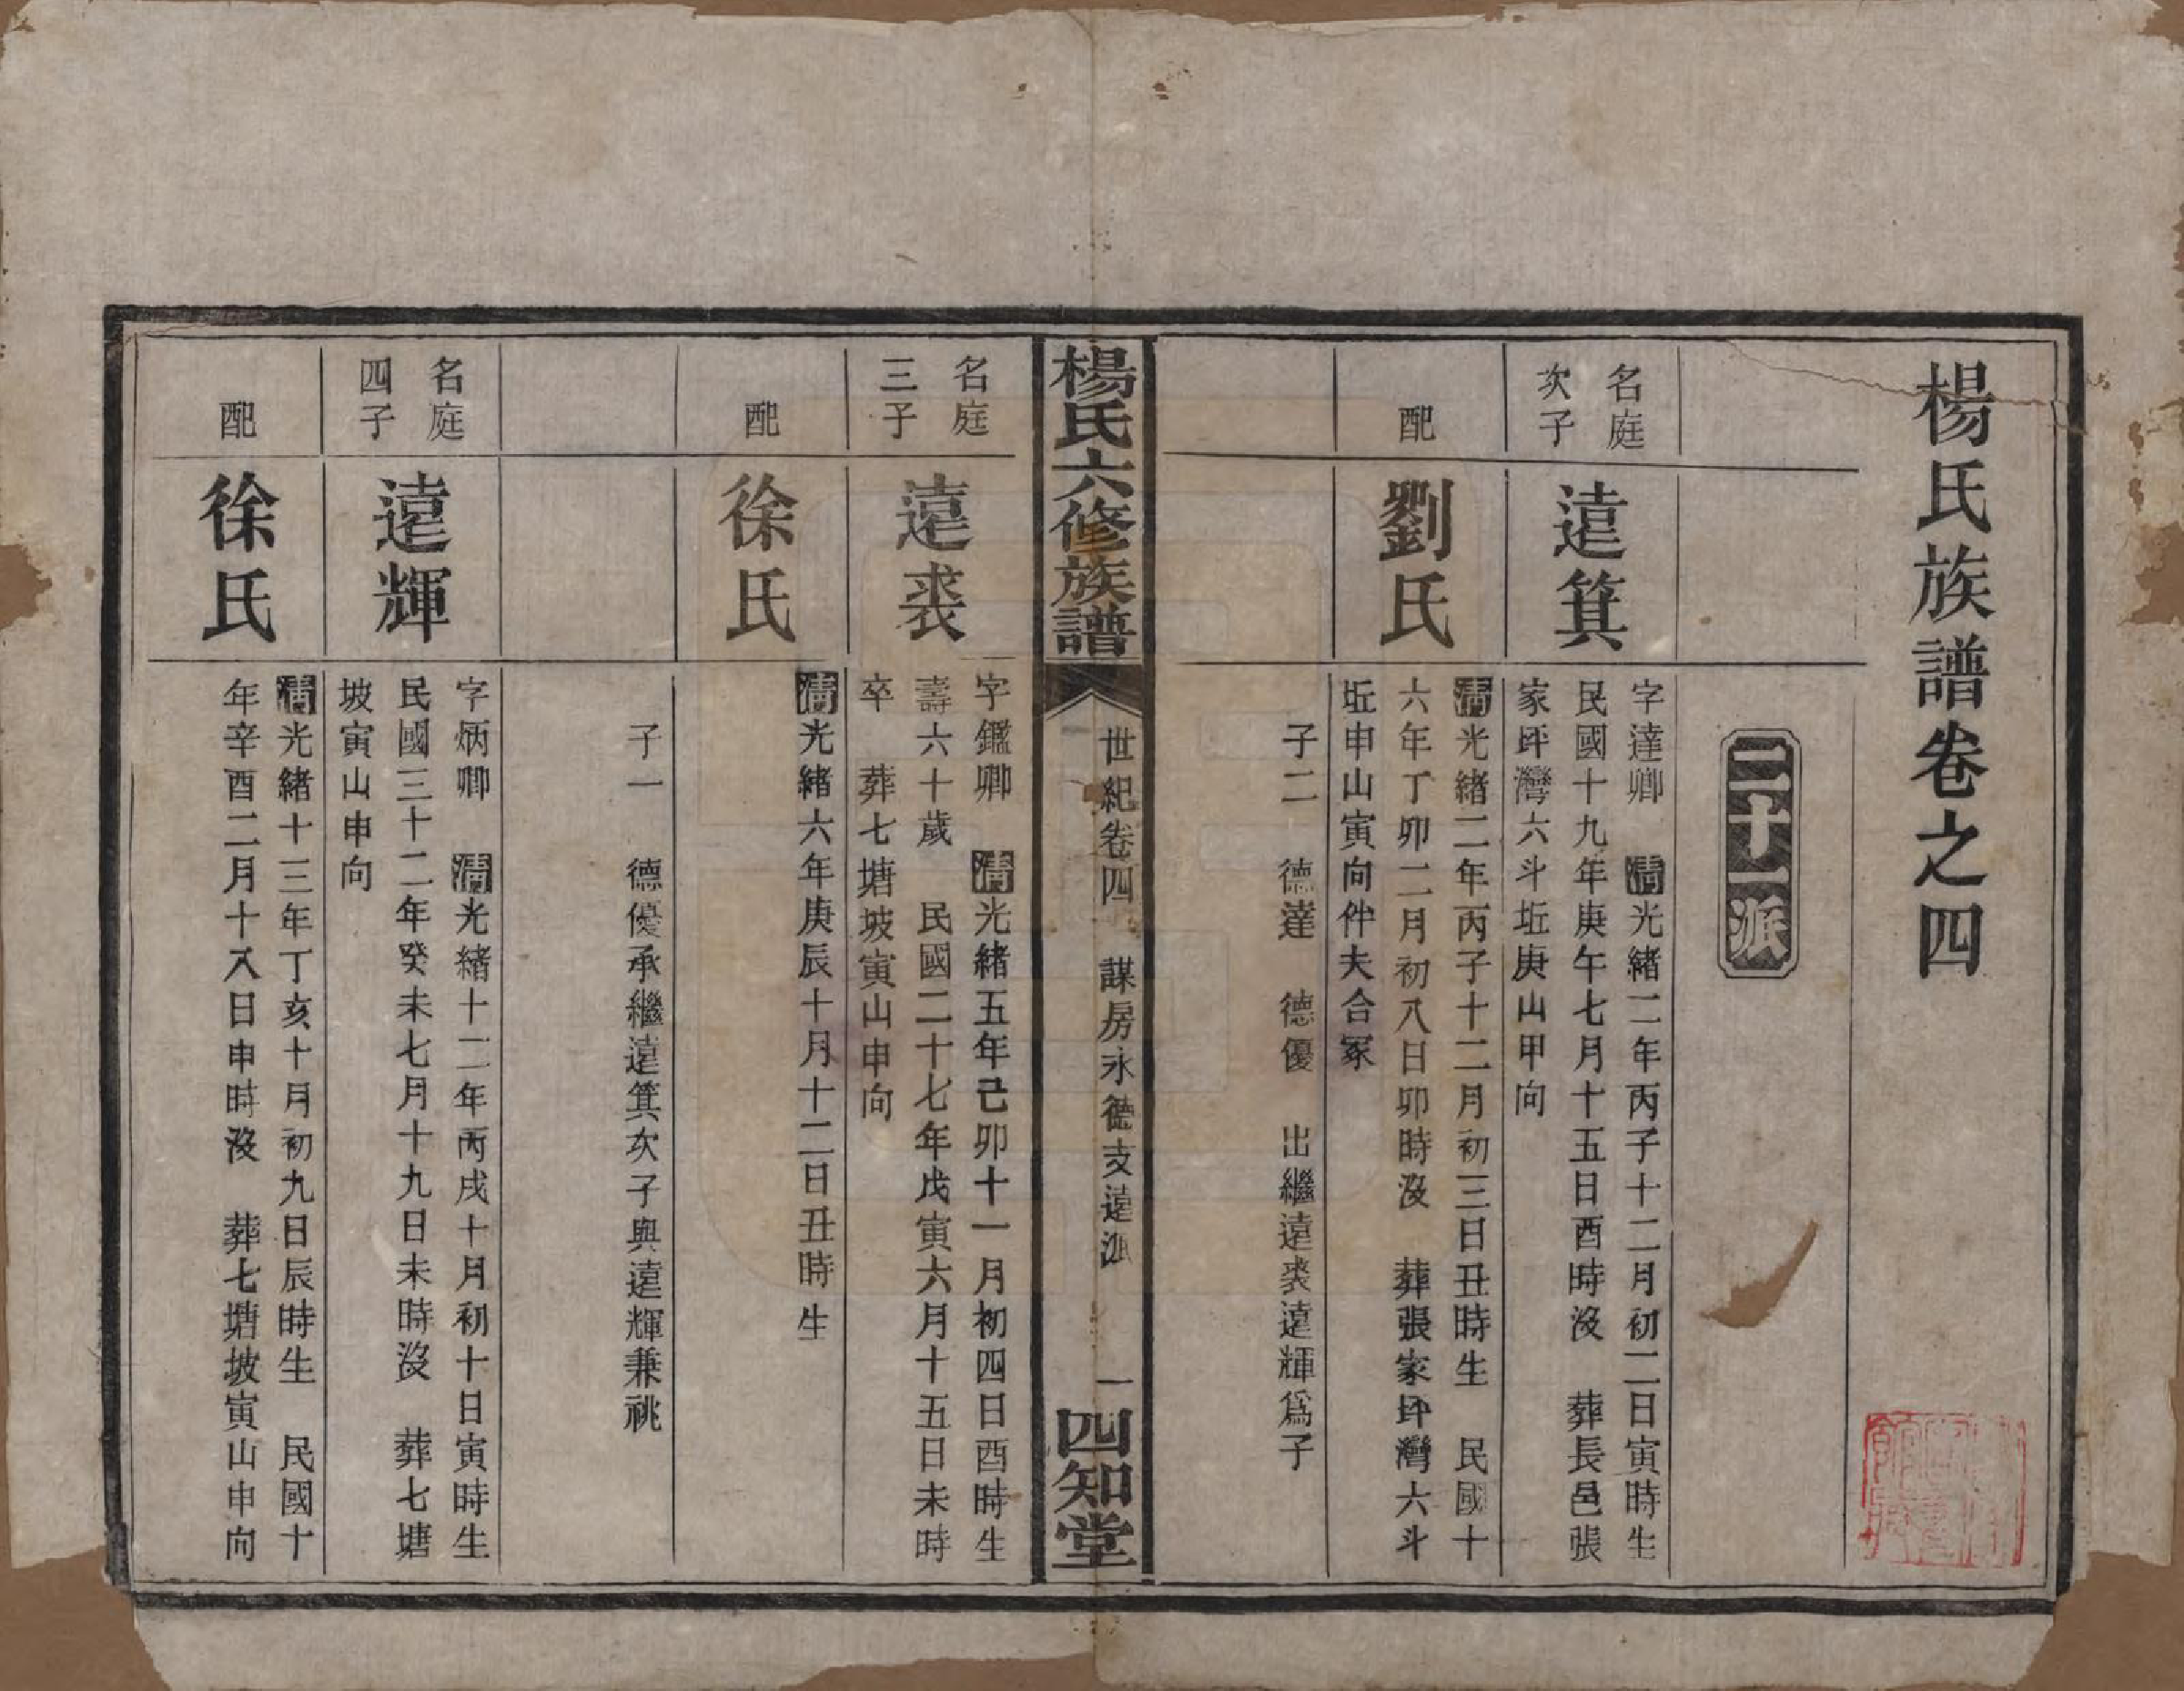 楊氏族譜卷之四
二十一派
名庭
次子
遠箕
字達卿　清光緒二年丙子十二月初二日寅時生
民國十九年庚午七月十五日酉時沒　葬長邑張
家坪灣六斗坵庚山甲向
配
劉氏
清光緒二年丙子十二月初三日丑時生　民國十
六年丁卯二月初八日卯時沒　葬張家坪灣六斗
坵申山寅向伴夫合冢
子二　德達　德優　出繼遠裘遠輝為子
楊氏六修族譜
世紀卷四　謀房永德支遠派
一
四知堂
名庭
三子
遠裘
字鑑卿　清光緒五年己卯十一月初四日酉時生
壽六十歲　民國二十七年戊寅六月十五日未時
卒　葬七塘坡寅山申向
配
徐氏
清光緒六年庚辰十月十二日丑時生
子一　德優承繼遠箕次子與遠輝兼祧
名庭
四子
遠輝
字炳卿　清光緒十二年丙戌十月初十日寅時生
民國三十二年癸未七月十九日未時沒　葬七塘
坡寅山申向
配
徐氏
清光緒十三年丁亥十月初九日辰時生　民國十
年辛酉二月十八日申時沒　葬七塘坡寅山申向